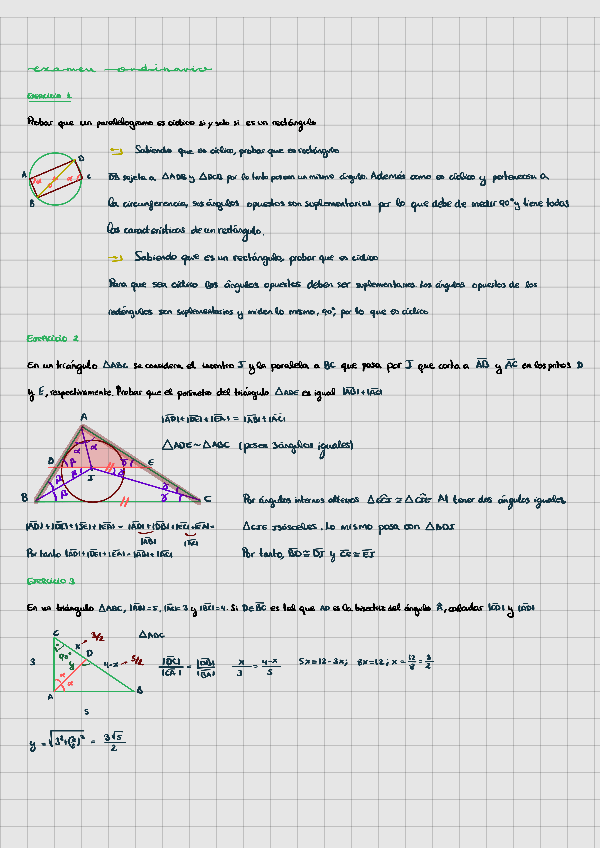 examen ordinario
EJERCICIO 1
Probar que un paralelogramo es cíclico si y solo si es un rectángulo
Sabiendo que es cíclico, probar que es rectángulo
A
D
C
B
sujeta a △ADB y △BCD por lo tanto poseen un mismo ángulo. Además como es cíclico y pertenecen a
la circunferencia, sus ángulos opuestos son suplementarios por lo que debe de medir 90° y tiene todas
las características de un rectángulo.
Sabiendo que es un rectángulo, probar que es cíclico
Para que sea cíclico los ángulos opuestos deben ser suplementarios. Los ángulos opuestos de los
rectángulos son suplementarios y miden lo mismo, 90°, por lo que es cíclico
EJERCICIO 2
En un triángulo △ABC se considera el incentro J y la paralela a BC que pasa por J que corta a AB y AC en los puntos D
y E, respectivamente. Probar que el perímetro del triángulo △ADE es igual |AB|+|AC|
|AD|+|DE|+|EA| = |AB|+|AC|
△ADE~△ABC (poseen 3 ángulos iguales)
A
α α
D E
β γ
J
B β β γ γ C
Por ángulos internos alternos Al tener dos ángulos iguales
|AD|+|DE|+|EA| = |AD|+|DB|+|EC|+|EA| =
|AB| |AC|
△CJE isósceles. Lo mismo pasa con △BDJ
Por tanto |AD|+|DE|+|EA| = |AB|+|AC|
Por tanto, BD≅DJ y CE≅EJ
EJERCICIO 3
En un triángulo △ABC, |AB|=5, |AC|=3 y |BC|=4. Si D∈BC es tal que AD es la bisectriz del ángulo Â, calcular |CD| y |AD|
△ABC
C
x → 3/2
90°
D
3
y
4-x → 5/2
α
α
A
B
5
|DC|/|CA| = |DB|/|BA|
x/3 = (4-x)/5
5x=12-3x; 8x=12; x=12/8=3/2
y = √(3²+(3/2)²) = 3√5/2